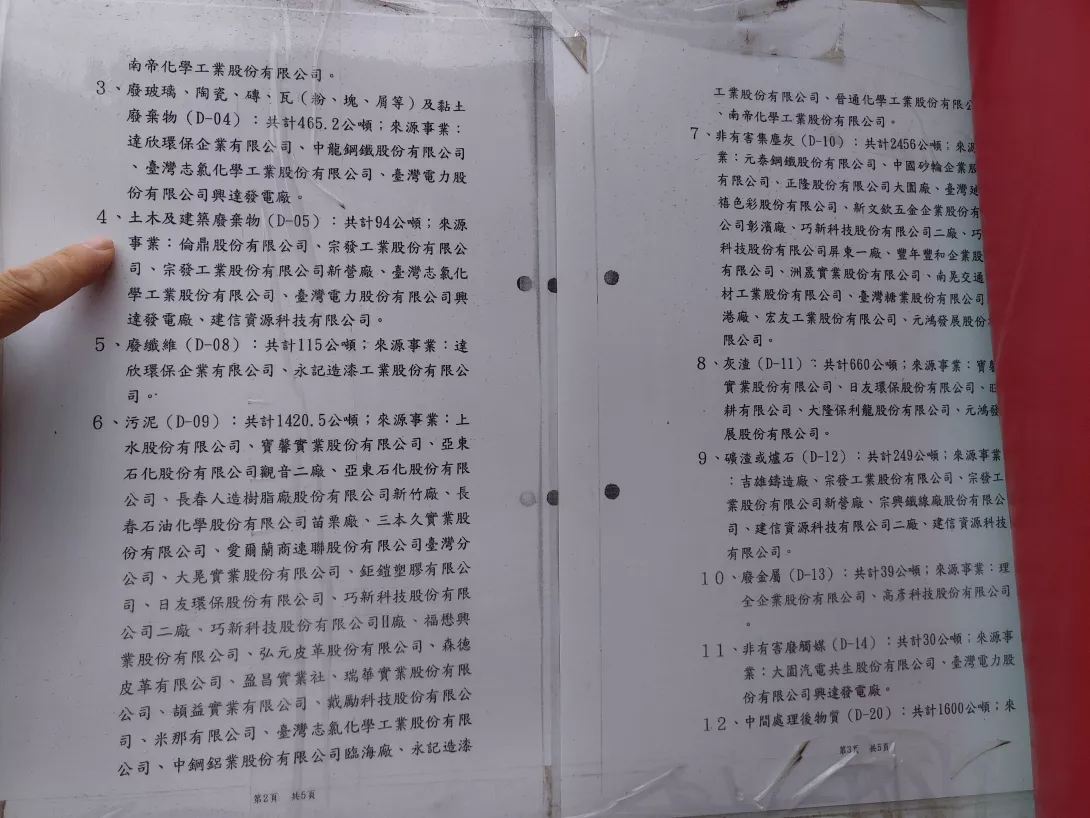 南帝化學工業股份有限公司。
3、廢玻璃、陶瓷、磚、瓦(粉、塊、屑等)及黏土
廢棄物(D-04):共計465.2公噸;來源事業:
達欣環保企業有限公司、中龍鋼鐵股份有限公司
、臺灣志氯化學工業股份有限公司、臺灣電力股
份有限公司興達發電廠。
4、土木及建築廢棄物(D-05):共計94公噸;來源
事業:倫鼎股份有限公司、宗發工業股份有限公
司、宗發工業股份有限公司新營廠、臺灣志氯化
學工業股份有限公司、臺灣電力股份有限公司興
達發電廠、建信資源科技有限公司。
5、廢纖維(D-08):共計115公噸;來源事業:達
欣環保企業有限公司、永記造漆工業股份有限公
司。
6、污泥(D-09):共計1420.5公噸;來源事業:上
水股份有限公司、寶馨實業股份有限公司、亞東
石化股份有限公司觀音二廠、亞東石化股份有限
公司、長春人造樹脂廠股份有限公司新竹廠、長
春石油化學股份有限公司苗栗廠、三本久實業股
份有限公司、愛爾蘭商速聯股份有限公司臺灣分
公司、大晃實業股份有限公司、鉅鎧塑膠有限公
司、日友環保股份有限公司、巧新科技股份有限
公司二廠、巧新科技股份有限公司H廠、福懋興
業股份有限公司、弘元皮革股份有限公司、森德
皮革有限公司、盈昌實業社、瑞華實業股份有限
公司、頡益實業有限公司、戴勵科技股份有限公
司、米那有限公司、臺灣志氯化學工業股份有限
公司、中鋼鋁業股份有限公司臨海廠、永記造漆
第2頁 共5頁
工業股份有限公司、晉通化學工業股份有限公
、南帝化學工業股份有限公司。
7、非有害集塵灰(D-10):共計2456公噸;來源
業:元泰鋼鐵股份有限公司、中國砂輪企業股
有限公司、正隆股份有限公司大園廠、臺灣
禧色彩股份有限公司、新文欽五金企業股份有
公司彰濱廠、巧新科技股份有限公司二廠、巧
科技股份有限公司屏東一廠、豐年豐和企業股
有限公司、洲晟實業股份有限公司、南晃交通
材工業股份有限公司、臺灣糖業股份有限公司
港廠、宏友工業股份有限公司、元鴻發展股份
限公司。
8、灰渣(D-11):共計660公噸;來源事業:寶馨
實業股份有限公司、日友環保股份有限公司、旺
耕有限公司、大隆保利龍股份有限公司、元鴻發
展股份有限公司。
9、礦渣或爐石(D-12):共計249公噸;來源事業
:吉雄鑄造廠、宗發工業股份有限公司、宗發工
業股份有限公司新營廠、宗興鐵線廠股份有限公
司、建信資源科技有限公司二廠、建信資源科技
有限公司。
10、廢金屬(D-13):共計39公噸;來源事業:理
全企業股份有限公司、高彥科技股份有限公司
。
11、非有害廢觸媒(D-14):共計30公噸;來源事
業:大園汽電共生股份有限公司、臺灣電力股
份有限公司興達發電廠。
12、中間處理後物質(D-20):共計1600公噸;來
第3頁 共5頁